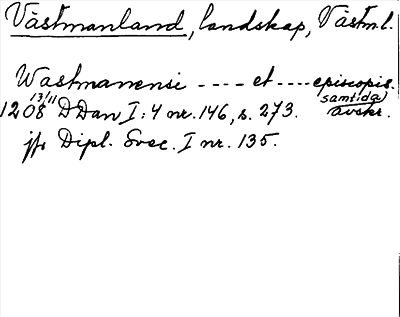 Västmanland, landskap, Västml.
Wastmanensi ---- et ---- episcopis.
13/11
1208 DDan I:4 nr. 146, s. 273. samtida avskr.
jfr Dipl. Svec. I nr. 135.